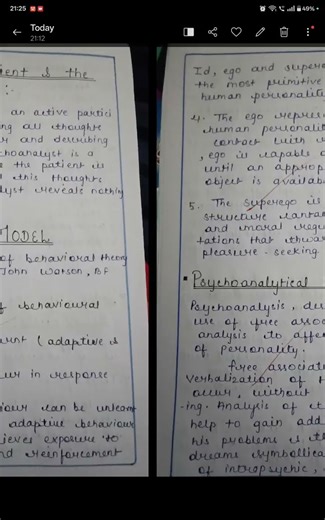 21:25
49%
Today
21:12
ient & the
an active partici
ing all thoughts
r and describing
choanalyst is a
e the patient is
d this thoughts
lyst reveals nothing
MODEL
of behavioral theory
John Watson, BF
of behavioural
urnt (adaptive &
ur in response
iour can be unlearnt
adaptive behaviour
lieves exposure to
nd reinforcement
Id, ego and supere
the most primitive
human personalit
4. The ego repres
human personali
contact with r
, ego is capable o
until an approp
object is availab
5. The superego is
structure contai
and moral requ
tations that thwar
pleasure - seeking
Psychoanalytical
Psychoanalysis, d
use of free asso
analysis to affe
of personality.
free associat
verbalization of t
occur, without
-ing. Analysis of
help to gain add
his problems is th
dreams symbollica
of intropsychic,